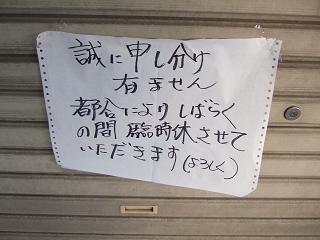 誠に申し分け
有ません
都合によりしばらく
の間臨時休させて
いただきます(よろしく)